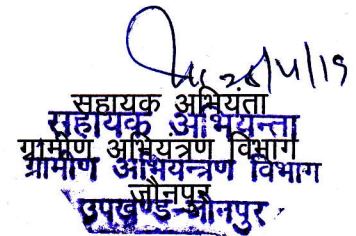 26/4/19
सहायक अभियंता
सहायक अभियन्ता
ग्रामीण अभियंत्रण विभाग
ग्रामीण अभियन्त्रण विभाग
जौनपुर
उपखण्ड-जौनपुर